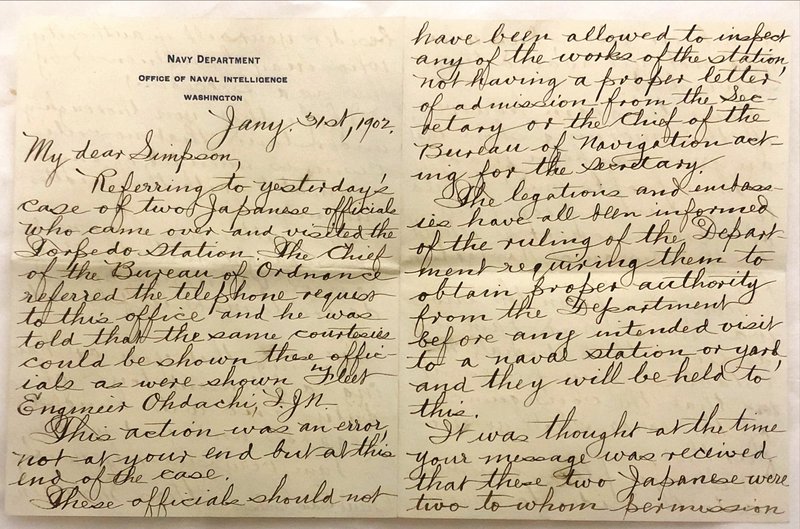 NAVY DEPARTMENT
OFFICE OF NAVAL INTELLIGENCE
WASHINGTON
Jany. 31st, 1902.
My dear Simpson,
Referring to yesterday's
case of two Japanese officials
who came over and visited the
Torpedo Station. The Chief
of the Bureau of Ordnance
referred the telephone request
to this office and he was
told that the same courtesies
could be shown these offic-
ials as were shown "Fleet
Engineer Ohdachi, I.J.N.
This action was an error,
not at your end but at this
end of the case.
These officials should not
have been allowed to inspect
any of the works of the station,
not having a proper letter
of admission from the Sec-
retary or the Chief of the
Bureau of Navigation act-
ing for the Secretary.
The legations and embass-
ies have all been informed
of the ruling of the Depart
ment requiring them to
obtain proper authority
from the Department
before any intended visit
to a naval station or yard,
and they will be held to
this.
It was thought at the time
your message was received
that these two Japanese were
two to whom permission